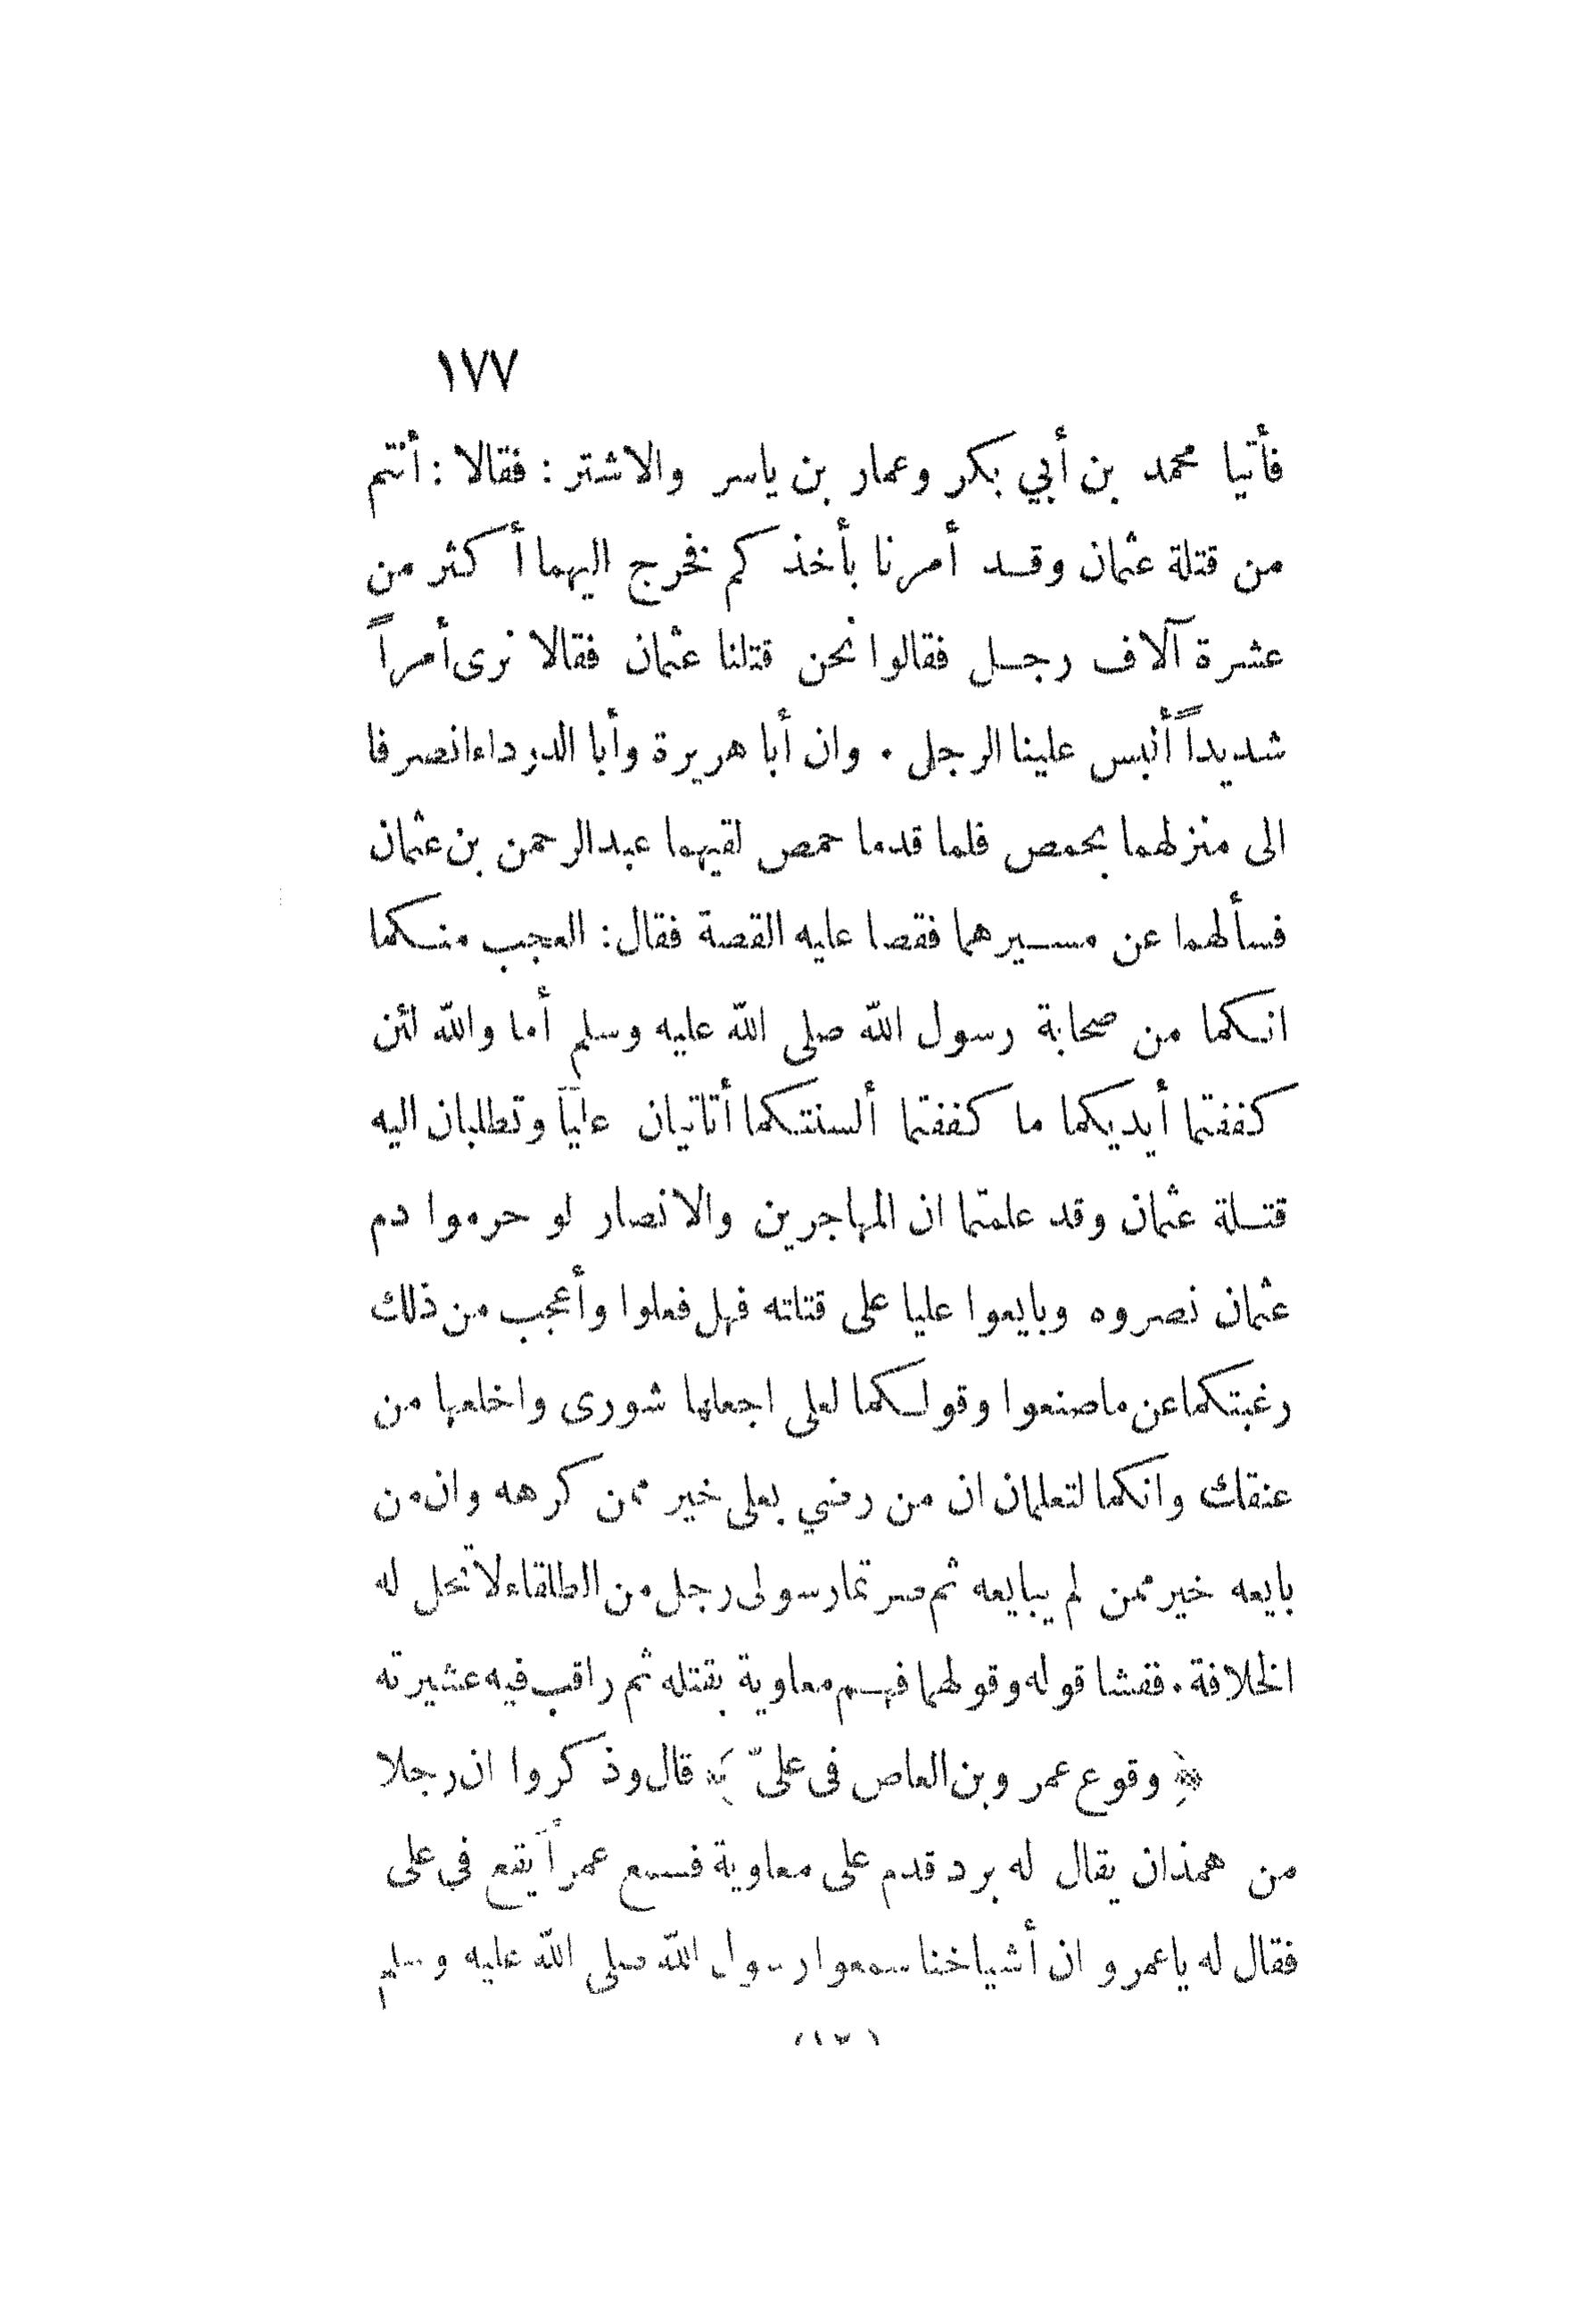 ١٧٧
فأتيا محمد بن أبي بكر وعمار بن ياسر والاشتر : فقالا : أنتم
من قتلة عثمان وقد أمرنا بأخذكم فخرج اليهما أكثر من
عشرة آلاف رجل فقالوا نحن قتلنا عثمان فقالا نرى أمراً
شديداً ألبس علينا الرجل . وان أبا هريرة وأبا الدرداء انصرفا
الى منزلهما بحمص فلما قدما حمص لقيهما عبد الرحمن بن عثمان
فسألهما عن مسيرهما فقصا عليه القصة فقال: العجب منكما
انكما من صحابة رسول الله صلى الله عليه وسلم أما والله لئن
كففتما أيديكما ما كففتما ألسنتكما أتاتيان علياً وتطلبان اليه
قتلة عثمان وقد علمتما ان المهاجرين والانصار لو حرموا دم
عثمان نصروه وبايعوا عليا على قتلته فهل فعلوا وأعجب من ذلك
رغبتكما عن ما صنعوا وقولكما لعلى اجعلها شورى واخلعها من
عنقك وانكما لتعلمان ان من رضي بعلى خير ممن كرهه وان من
بايعه خير ممن لم يبايعه ثم صرتما رسولى رجل من الطلقاء لا تحل له
الخلافة . ففشا قوله وقولهما فهم معاوية بقتله ثم راقب فيه عشيرته
﴿ وقوع عمر وبن العاص فى علىّ ﴾ قال وذكروا ان رجلا
من همذان يقال له برد قدم على معاوية فسمع عمراً يقع في على
فقال له ياعمرو ان أشياخنا سمعوا رسول الله صلى الله عليه وسلم